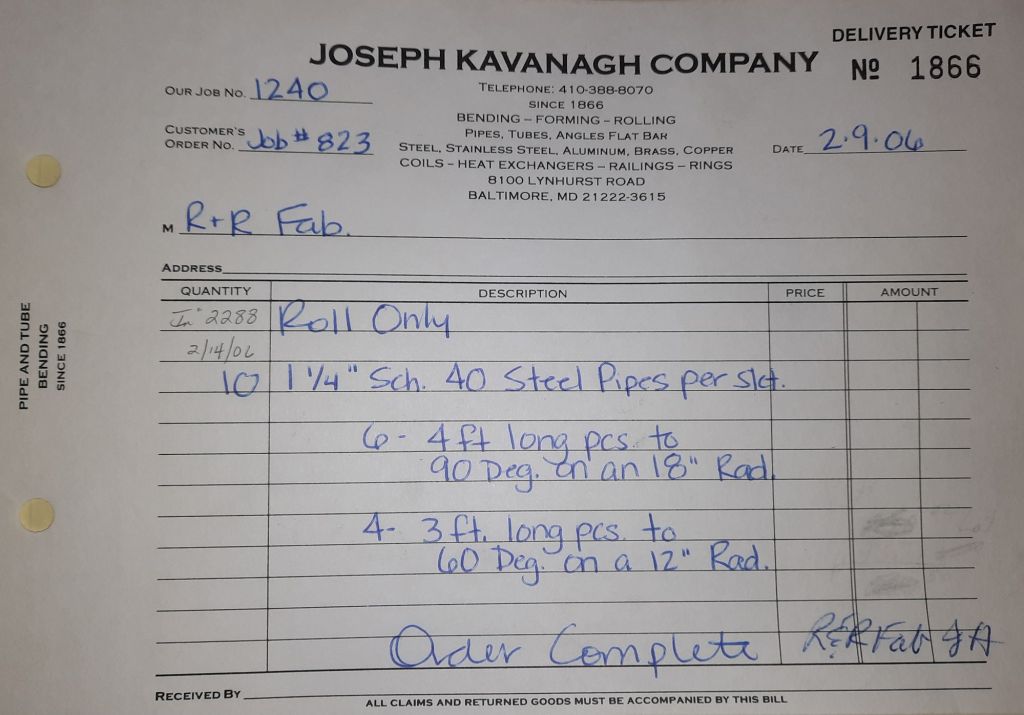 DELIVERY TICKET
JOSEPH KAVANAGH COMPANY
Nº 1866
OUR JOB NO. 1240
TELEPHONE: 410-388-8070
SINCE 1866
BENDING – FORMING – ROLLING
PIPES, TUBES, ANGLES FLAT BAR
CUSTOMER'S
ORDER NO. Job # 823
STEEL, STAINLESS STEEL, ALUMINUM, BRASS, COPPER
DATE 2.9.06
COILS – HEAT EXCHANGERS – RAILINGS – RINGS
8100 LYNHURST ROAD
BALTIMORE, MD 21222-3615
M R+R Fab.
ADDRESS
QUANTITY DESCRIPTION PRICE AMOUNT
In° 2288 Roll Only
2/14/06
10 1 1/4" Sch. 40 Steel Pipes per skt.
6 - 4 ft long pcs. to
90 Deg. on an 18" Rad.
4 - 3 ft. long pcs. to
60 Deg. on a 12" Rad.
Order Complete R&R Fab
RECEIVED BY
ALL CLAIMS AND RETURNED GOODS MUST BE ACCOMPANIED BY THIS BILL
PIPE AND TUBE
BENDING
SINCE 1866